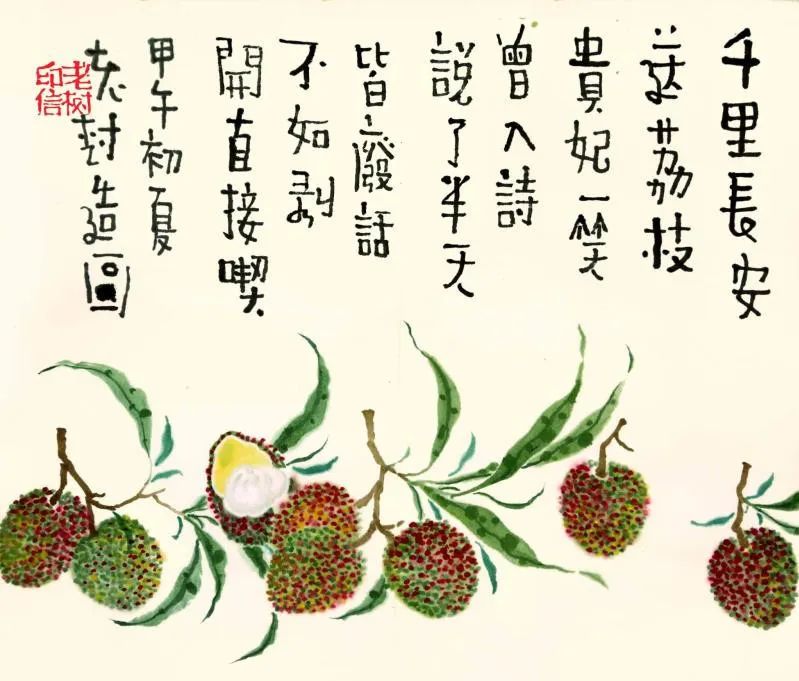 千里長安
送荔枝
貴妃一笑
曾入詩
說了半天
皆廢話
不如剥
開直接喫
甲午初夏
老樹造圖
老树印信